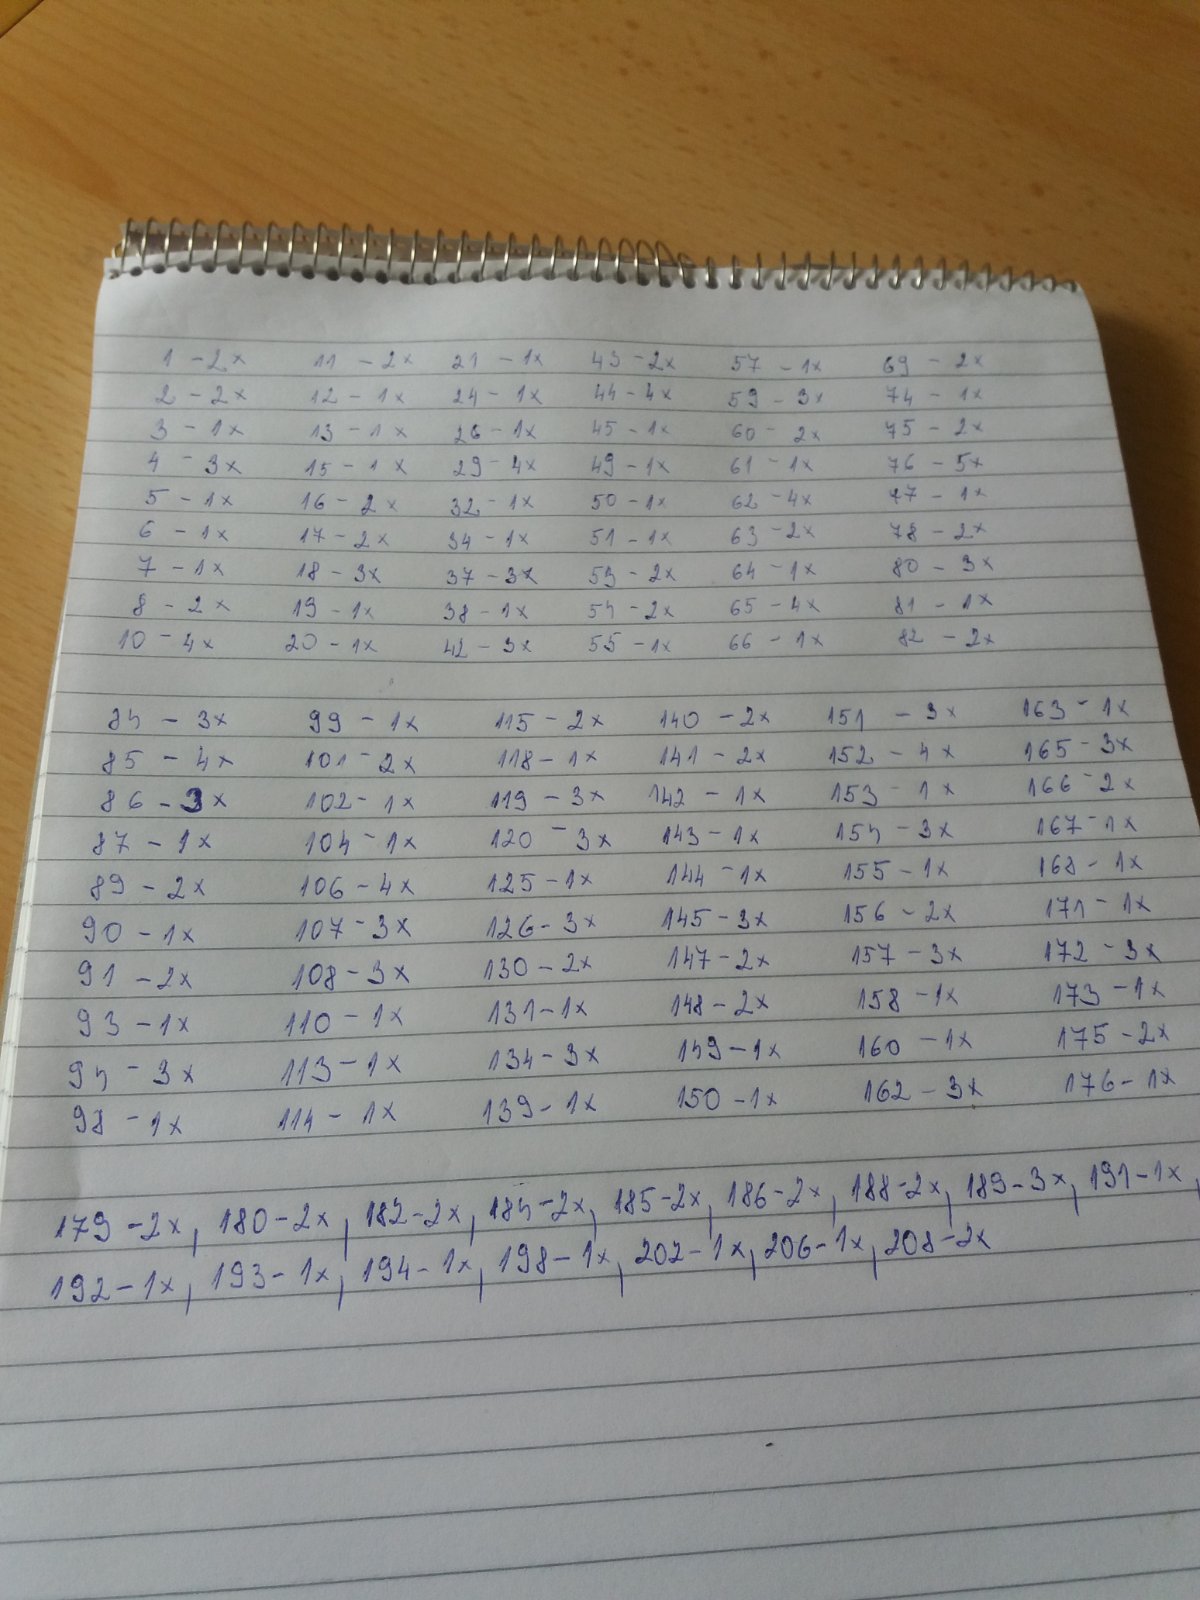 1 - 2x 11 - 2x 21 - 1x 43 - 2x 57 - 1x 69 - 2x
2 - 2x 12 - 1x 24 - 1x 44 - 4x 59 - 3x 74 - 1x
3 - 1x 13 - 1x 26 - 1x 45 - 1x 60 - 2x 75 - 2x
4 - 3x 15 - 1x 29 - 4x 49 - 1x 61 - 1x 76 - 5x
5 - 1x 16 - 2x 32 - 1x 50 - 1x 62 - 4x 77 - 1x
6 - 1x 17 - 2x 34 - 1x 51 - 1x 63 - 2x 78 - 2x
7 - 1x 18 - 3x 37 - 3x 53 - 2x 64 - 1x 80 - 3x
8 - 2x 19 - 1x 38 - 1x 54 - 2x 65 - 4x 81 - 1x
10 - 4x 20 - 1x 42 - 3x 55 - 1x 66 - 1x 82 - 2x
84 - 3x 99 - 1x 115 - 2x 140 - 2x 151 - 3x 163 - 1x
85 - 4x 101 - 2x 118 - 1x 141 - 2x 152 - 4x 165 - 3x
86 - 3x 102 - 1x 119 - 3x 142 - 1x 153 - 1x 166 - 2x
87 - 1x 104 - 1x 120 - 3x 143 - 1x 154 - 3x 167 - 1x
89 - 2x 106 - 4x 125 - 1x 144 - 1x 155 - 1x 168 - 1x
90 - 1x 107 - 3x 126 - 3x 145 - 3x 156 - 2x 171 - 1x
91 - 2x 108 - 3x 130 - 2x 147 - 2x 157 - 3x 172 - 3x
93 - 1x 110 - 1x 131 - 1x 148 - 2x 158 - 1x 173 - 1x
94 - 3x 113 - 1x 134 - 3x 149 - 1x 160 - 1x 175 - 2x
98 - 1x 114 - 1x 139 - 1x 150 - 1x 162 - 3x 176 - 1x
179 - 2x, 180 - 2x, 182 - 2x, 184 - 2x, 185 - 2x, 186 - 2x, 188 - 2x, 189 - 3x, 191 - 1x,
192 - 1x, 193 - 1x, 194 - 1x, 198 - 1x, 202 - 1x, 206 - 1x, 208 - 2x